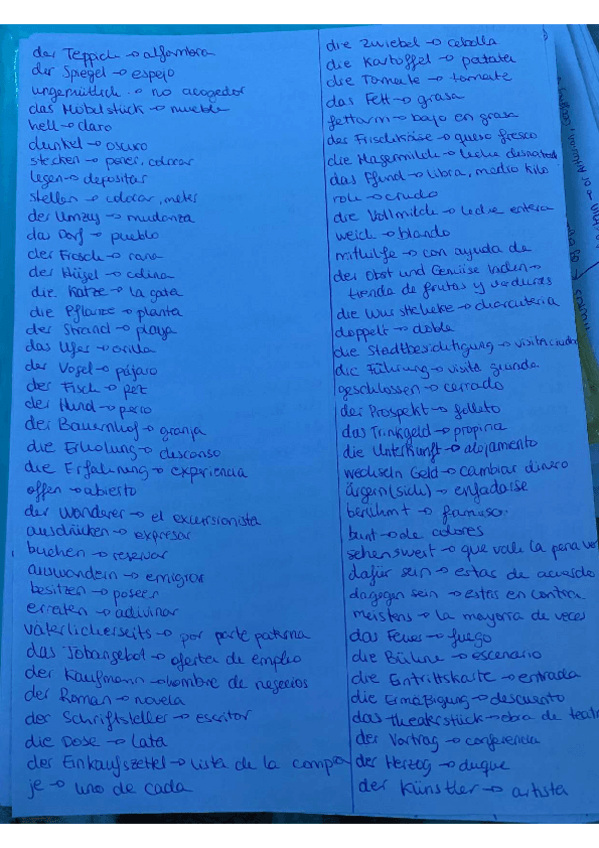 der Teppich → alfombra
der Spiegel → espejo
ungemütlich → no acogedor
das Möbelstück → mueble
hell → claro
dunkel → oscuro
stecken → poner, colocar
legen → depositar
stellen → colocar, meter
der Umzug → mudanza
das Dorf → pueblo
der Frosch → rana
der Hügel → colina
die Katze → la gata
die Pflanze → planta
der Strand → playa
das Ufer → orilla
der Vogel → pájaro
der Fisch → pez
der Hund → perro
der Bauernhof → granja
die Erholung → descanso
die Erfahrung → experiencia
offen → abierto
der Wanderer → el excursionista
ausdrücken → expresar
buchen → reservar
auswandern → emigrar
besitzen → poseer
erraten → adivinar
väterlicherseits → por parte paterna
das Jobangebot → oferta de empleo
der Kaufmann → hombre de negocios
der Roman → novela
der Schriftsteller → escritor
die Dose → lata
der Einkaufszettel → lista de la compra
je → uno de cada
die Zwiebel → cebolla
die Kartoffel → patata
die Tomate → tomate
das Fett → grasa
fettarm → bajo en grasa
der Frischkäse → queso fresco
die Magermilch → leche desnatad
das Pfund → libra, medio kilo
roh → crudo
die Vollmilch → leche entera
weich → blando
mithilfe → con ayuda de
der Obst und Gemüse laden →
tienda de frutas y verduras
die Wurstheke → charcuteria
doppelt → doble
die Stadtbesichtigung → visita ciudad
die Führung → visita guiada
geschlossen → cerrado
der Prospekt → folleto
das Trinkgeld → propina
die Unterkunft → alojamento
wechseln Geld → cambiar dinero
ärgern (sich) → enfadarse
berühmt → famoso
bunt → de colores
sehenswert → que vale la pena ver
dafür sein → estar de acuerdo
dagegen sein → estar en contra
meistens → la mayoria de veces
das Feuer → fuego
die Bühne → escenario
die Eintrittskarte → entrada
die Ermäßigung → descuento
das Theaterstück → obra de teatr
der Vortrag → conferencia
der Herzog → duque
der Künstler → artista